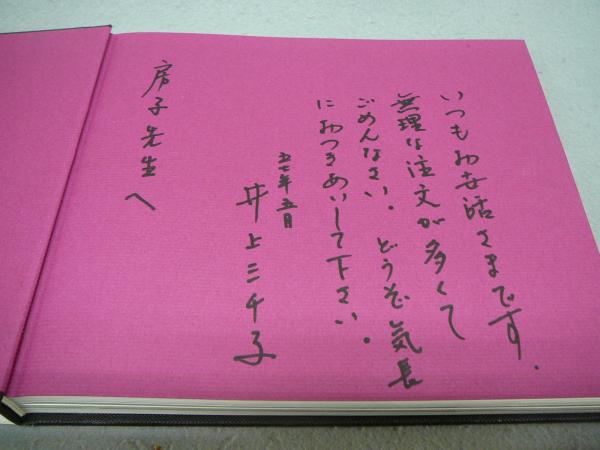 いつもお世話さまです.
無理な注文が多くて
ごめんなさい。どうぞ気長
におつきあいして下さい。
五七年五月
井上三千子
房子先生へ